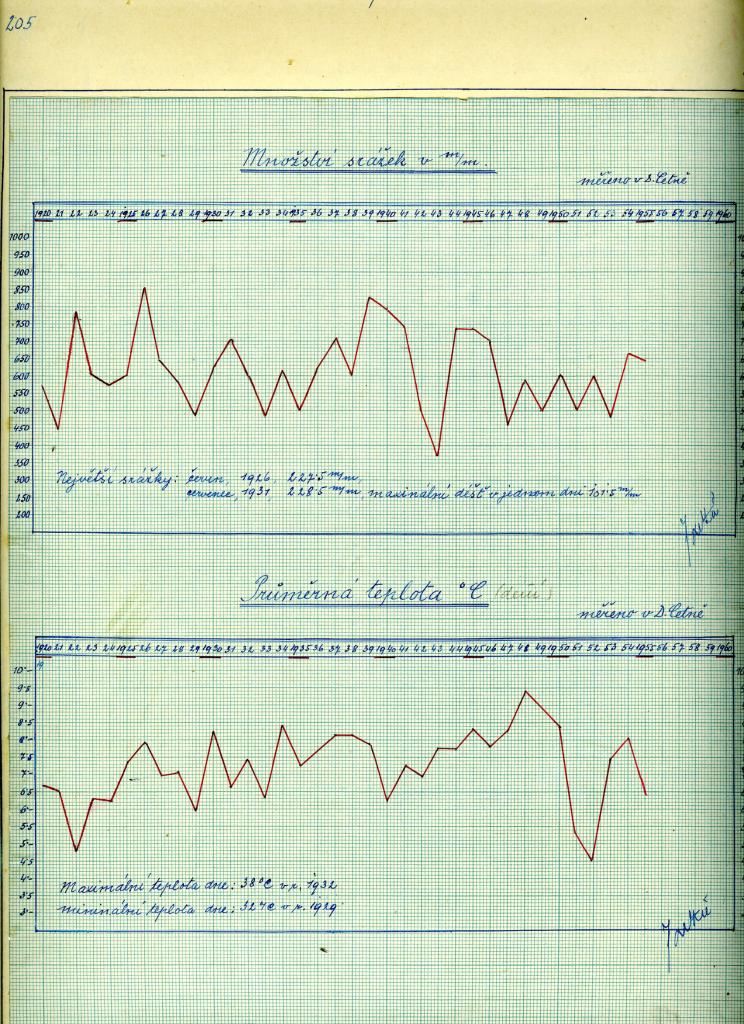 205
Množství srážek v m/m.
měřeno v D. Cetně
1920 21 22 23 24 1925 26 27 28 29 1930 31 32 33 34 1935 36 37 38 39 1940 41 42 43 44 1945 46 47 48 49 1950 51 52 53 54 1955 56 57 58 59 1960
1000
950
900
850
800
750
700
650
600
550
500
450
400
350
300
150
100
Největší srážky: červen, 1926, 227·5 m/m,
červenec, 1931, 228·5 m/m, maximální déšť v jednom dni 101·5 m/m
Průměrná teplota °C (denní)
měřeno v D. Cetně
1920 21 22 23 24 1925 26 27 28 29 1930 31 32 33 34 1935 36 37 38 39 1940 41 42 43 44 1945 46 47 48 49 1950 51 52 53 54 1955 56 57 58 59 1960
10·-
9·5
9·-
8·5
8·-
7·5
7·-
6·5
6·-
5·5
5·-
4·5
4·-
3·5
3·-
Maximální teplota dne: 38°C v r. 1932
minimální teplota dne: 32°C v r. 1929